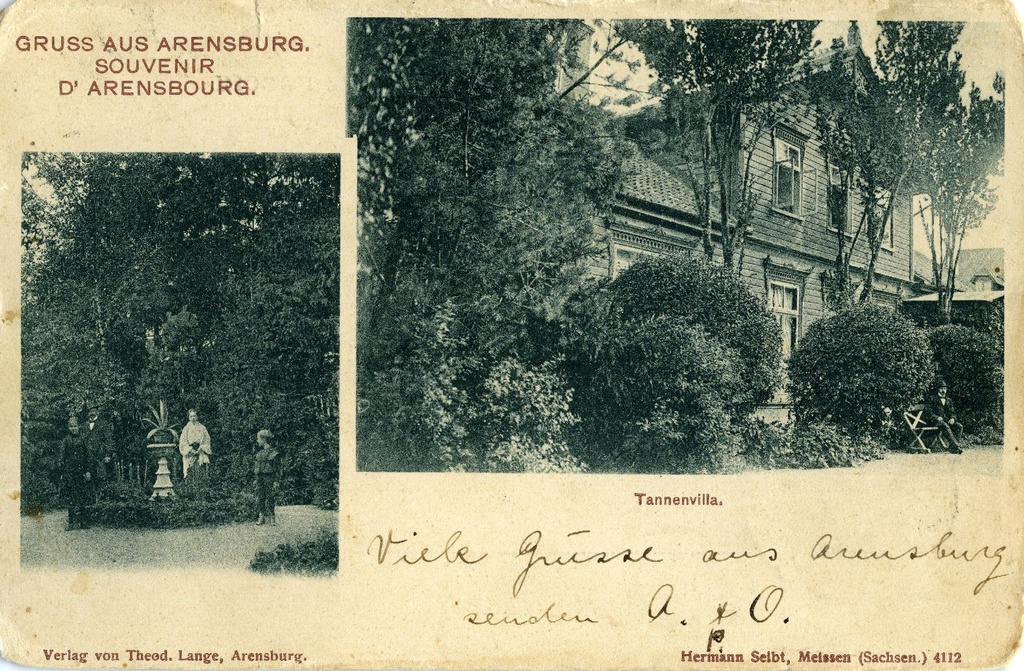 GRUSS AUS ARENSBURG.
SOUVENIR
D' ARENSBOURG.
Tannenvilla.
Viele Grüsse aus Arensburg
senden A. & O.
P.
Verlag von Theod. Lange, Arensburg.
Hermann Seibt, Meissen (Sachsen.) 4112